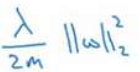 λ/2m ||ω||₂²